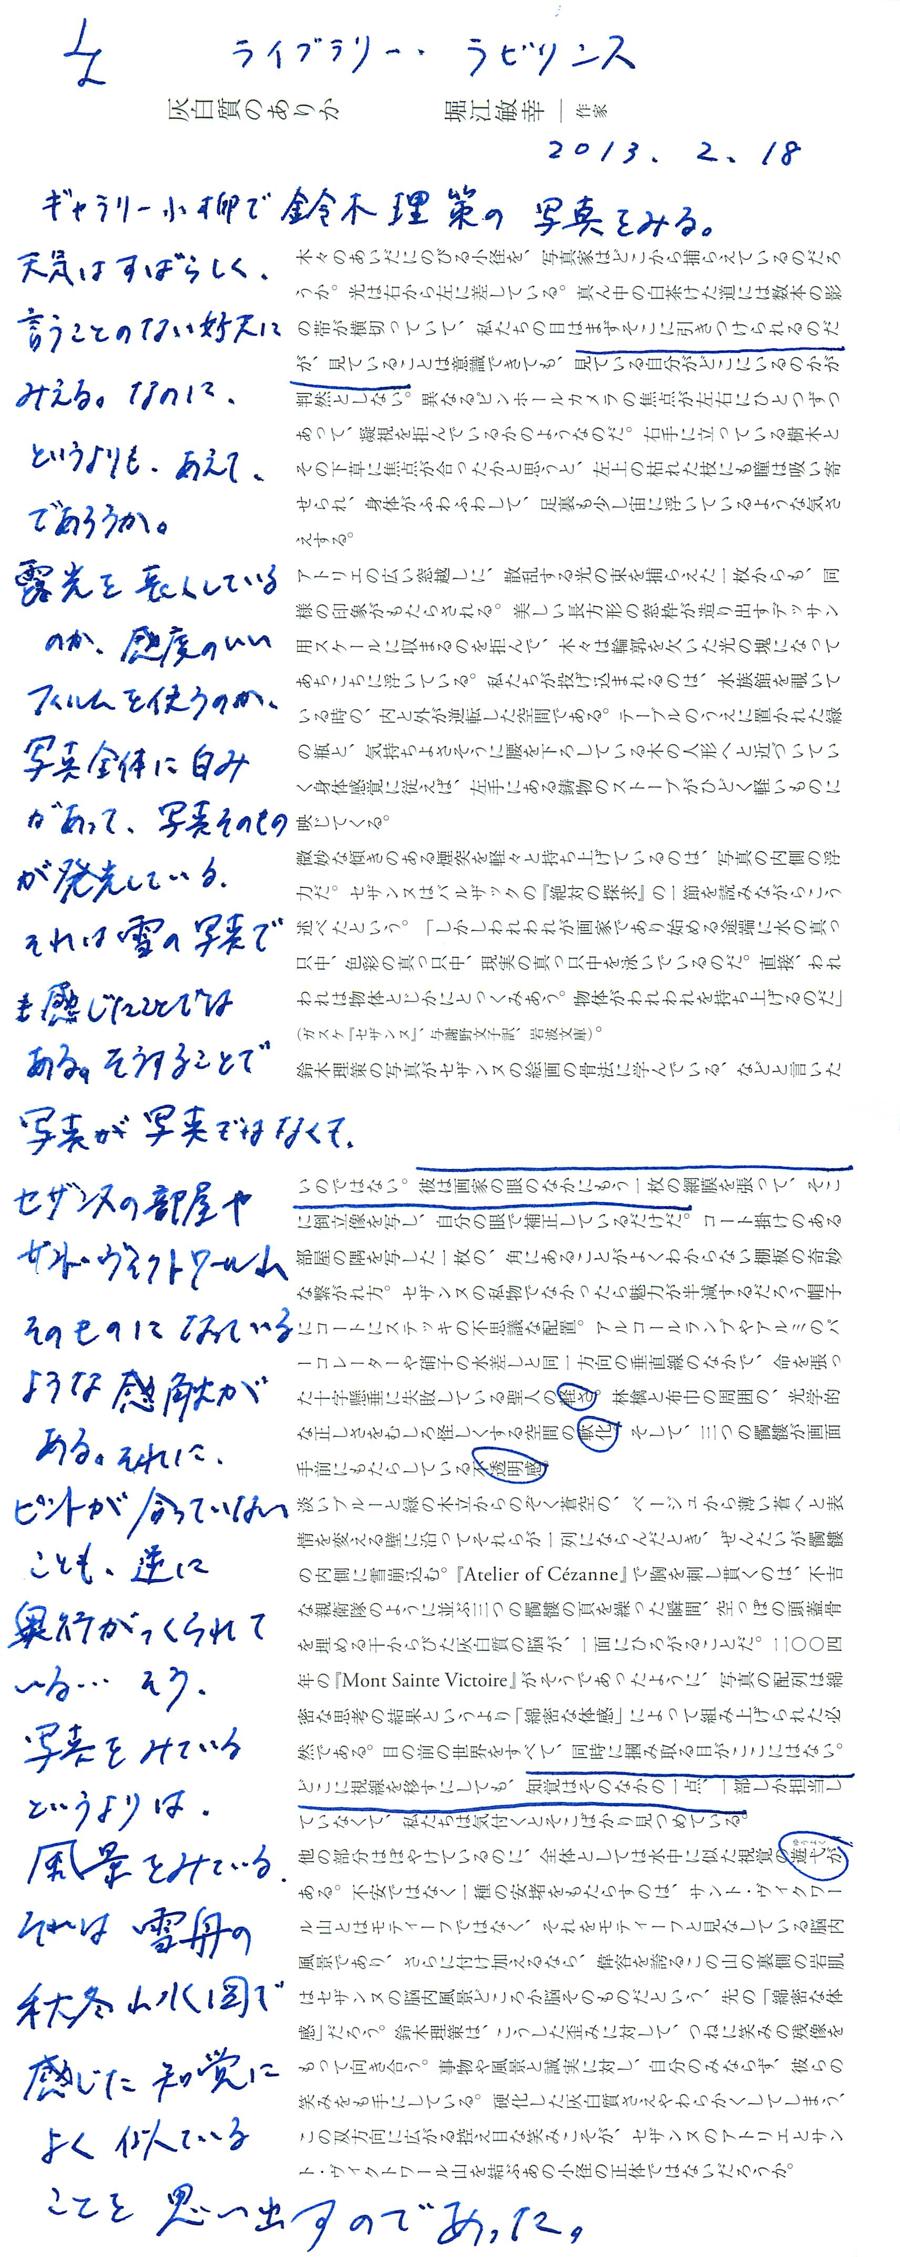 LL
ライブラリー・ラビリンス
灰白質のありか　堀江敏幸｜作家
2013. 2. 18
ギャラリー小柳で鈴木理策の写真をみる。
天気はすばらしく、
言うことのない好天に
みえる。なのに、
というよりも、あえて、
であろうか。
露光を長くしている
のか、感度のいい
フィルムを使うのか、
写真全体に白み
があって、写真そのもの
が発光している。
それは雪の写真で
も感じたことでは
ある。そうすることで
写真が写真ではなくて、
セザンヌの部屋や
サント・ヴィクトワール山
そのものになっている
ような感触が
ある。それに、
ピントが合っていない
ことも、逆に
奥行がつくられて
いる… そう、
写真をみている
というよりは、
風景をみている。
それは雪舟の
秋冬山水図で
感じた知覚に
よく似ている
ことを思い出すのであった。
木々のあいだにのびる小径を、写真家はどこから捕らえているのだろ
うか。光は右から左に差している。真ん中の白茶けた道には数本の影
の帯が横切っていて、私たちの目はまずそこに引きつけられるのだ
が、見ていることは意識できても、見ている自分がどこにいるのかが
判然としない。異なるピンホールカメラの焦点が左右にひとつずつ
あって、凝視を拒んでいるかのようなのだ。右手に立っている樹木と
その下草に焦点が合ったかと思うと、左上の枯れた枝にも瞳は吸い寄
せられ、身体がふわふわして、足裏も少し宙に浮いているような気さ
えする。
アトリエの広い窓越しに、散乱する光の束を捕らえた一枚からも、同
様の印象がもたらされる。美しい長方形の窓枠が造り出すデッサン
用スケールに収まるのを拒んで、木々は輪郭を欠いた光の塊になって
あちこちに浮いている。私たちが投げ込まれるのは、水族館を覗いて
いる時の、内と外が逆転した空間である。テーブルのうえに置かれた緑
の瓶と、気持ちよさそうに腰を下ろしている木の人形へと近づいてい
く身体感覚に従えば、左手にある鋳物のストーブがひどく軽いものに
映じてくる。
微妙な傾きのある煙突を軽々と持ち上げているのは、写真の内側の浮
力だ。セザンヌはバルザックの『絶対の探求』の一節を読みながらこう
述べたという。「しかしわれわれが画家であり始める途端に水の真っ
只中、色彩の真っ只中、現実の真っ只中を泳いでいるのだ。直接、われ
われは物体とじかにとっくみあう。物体がわれわれを持ち上げるのだ」
（ガスケ『セザンヌ』、与謝野文子訳、岩波文庫）。
鈴木理策の写真がセザンヌの絵画の骨法に学んでいる、などと言いた
いのではない。彼は画家の眼のなかにもう一枚の網膜を張って、そこ
に倒立像を写し、自分の眼で補正しているだけだ。コート掛けのある
部屋の隅を写した一枚の、角にあることがよくわからない棚板の奇妙
な繋がれ方。セザンヌの私物でなかったら魅力が半減するだろう帽子
にコートにステッキの不思議な配置。アルコールランプやアルミのパ
ーコレーターや硝子の水差しと同一方向の垂直線のなかで、命を張っ
た十字懸垂に失敗している聖人の軽さ。林檎と布巾の周囲の、光学的
な正しさをむしろ怪しくする空間の軟化。そして、三つの髑髏が画面
手前にもたらしている不透明感。
淡いブルーと緑の木立からのぞく蒼空の、ベージュから薄い蒼へと表
情を変える壁に沿ってそれらが一列にならんだとき、ぜんたいが髑髏
の内側に雪崩込む。『Atelier of Cézanne』で胸を刺し貫くのは、不吉
な親衛隊のように並ぶ三つの髑髏の頁を繰った瞬間、空っぽの頭蓋骨
を埋める干からびた灰白質の脳が、一面にひろがることだ。二〇〇四
年の『Mont Sainte Victoire』がそうであったように、写真の配列は綿
密な思考の結果というより「綿密な体感」によって組み上げられた必
然である。目の前の世界をすべて、同時に摑み取る目がここにはない。
どこに視線を移すにしても、知覚はそのなかの一点、一部しか担当し
ていなくて、私たちは気付くとそこばかり見つめている。
他の部分はぼやけているのに、全体としては水中に似た視覚の遊弋が
ある。不安ではなく一種の安堵をもたらすのは、サント・ヴィクワー
ル山とはモティーフではなく、それをモティーフと見なしている脳内
風景であり、さらに付け加えるなら、偉容を誇るこの山の裏側の岩肌
はセザンヌの脳内風景どころか脳そのものだという、先の「綿密な体
感」だろう。鈴木理策は、こうした歪みに対して、つねに笑みの残像を
もって向き合う。事物や風景と誠実に対し、自分のみならず、彼らの
笑みをも手にしている。硬化した灰白質さえやわらかくしてしまう、
この双方向に広がる控え目な笑みこそが、セザンヌのアトリエとサン
ト・ヴィクトワール山を結ぶあの小径の正体ではないだろうか。